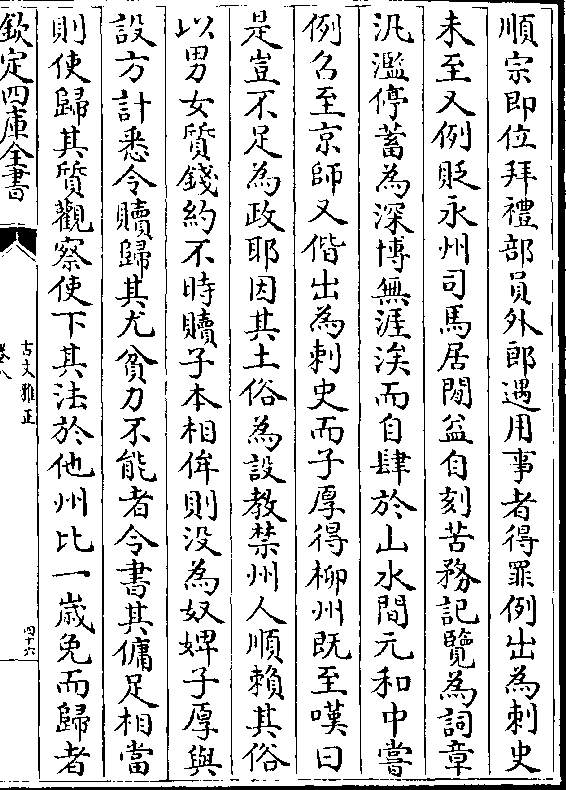 順宗即位拜禮部員外郎遇用事者得罪例出為刺史
未至又例貶永州司馬居閒益自刻苦務記覽為詞章
汎濫停蓄為深博無涯涘而自肆於山水間元和中嘗
例召至京師又偕出為刺史而子厚得柳州既至嘆曰
是豈不足為政耶因其土俗為設教禁州人順賴其俗
以男女質錢約不時贖子本相侔則没為奴婢子厚與
設方計悉令贖歸其尤貧力不能者令書其傭足相當
則使歸其質觀察使下其法於他州比一嵗免而歸者
欽定四庫全書
古文雅正
卷八
四十六